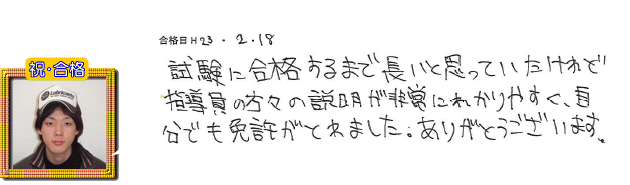 合格日H23.2.18
祝・合格
試験に合格するまで長いと思っていたけれど
指導員の方々の説明が非常にわかりやすく、自
分でも免許がとれました。ありがとうございます。